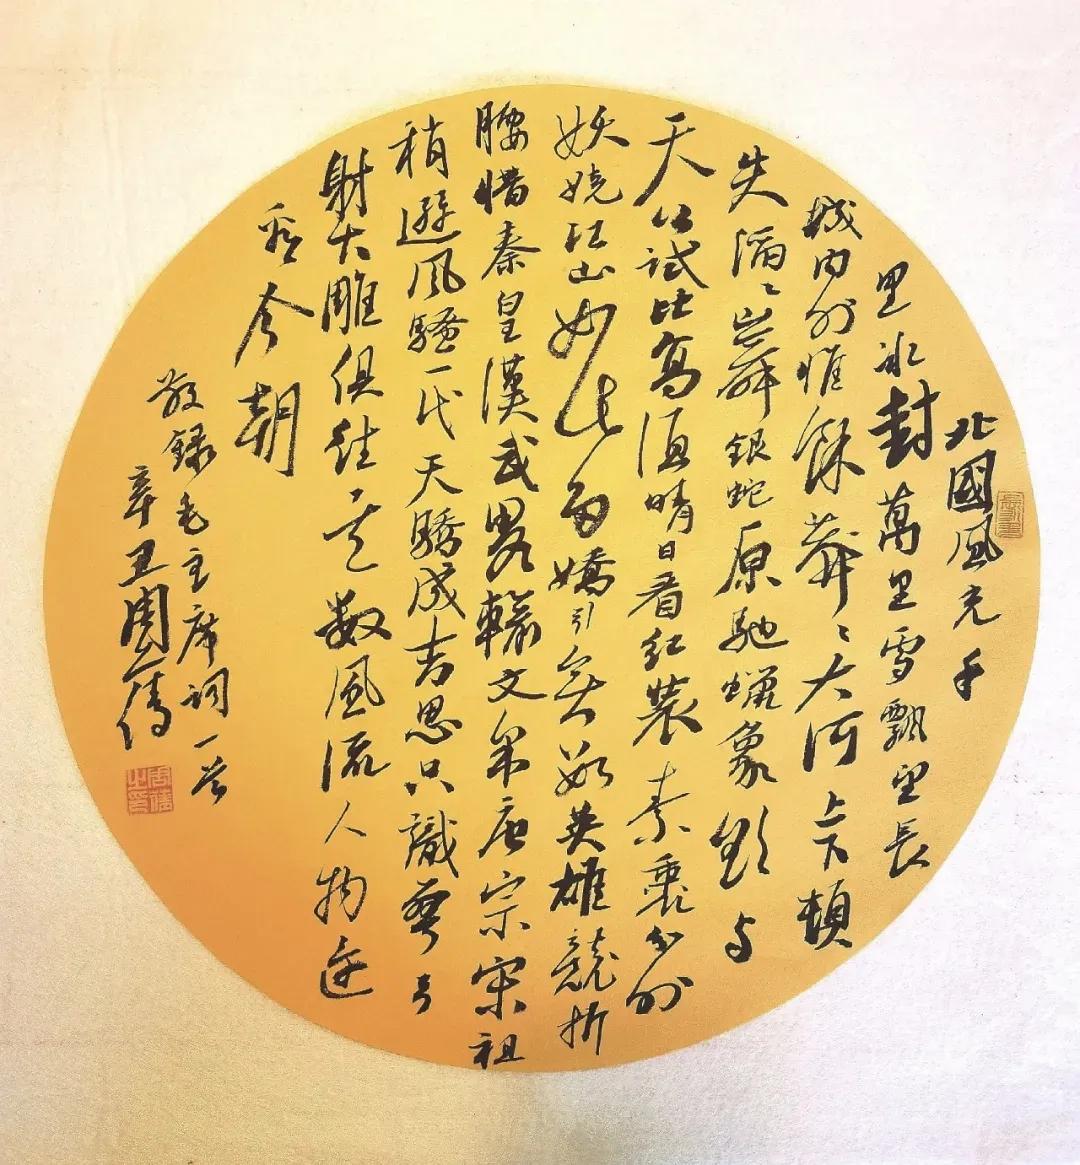 北國風光千
里冰封萬里雪飄望長
城内外惟餘莽〻大河上下頓
失滔〻山舞銀蛇原馳蠟象欲与
天公試比高須晴日看紅裝素裹分外
妖嬈江山如此多嬌引無數英雄競折
腰惜秦皇漢武畧輸文采唐宗宋祖
稍遜風騷一代天驕成吉思只識彎弓
射大雕俱往矣數風流人物還
看今朝
敬録毛主席詞一首
辛丑周